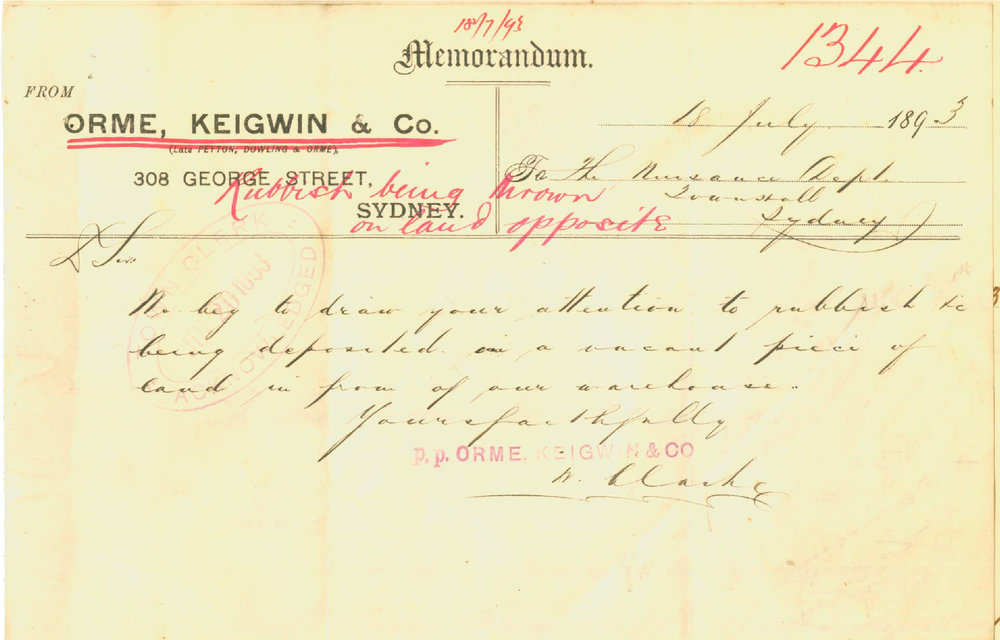 18/7/93
Memorandum.
1344
FROM
18 July 1893
ORME, KEIGWIN & Co.
(Late PEYTON, DOWLING & ORME),
308 GEORGE STREET,
SYDNEY.
To The Nuisance Dept.
Townhall
Sydney
Rubbish being thrown
on land opposite
D Sir
We beg to draw your attention to rubbish &c
being deposited on a vacant piece of
land in front of our warehouse.
Yours faithfully
p.p. ORME, KEIGWIN & CO
W. Clarke
TOWN CLERK
ACKNOWLEDGED